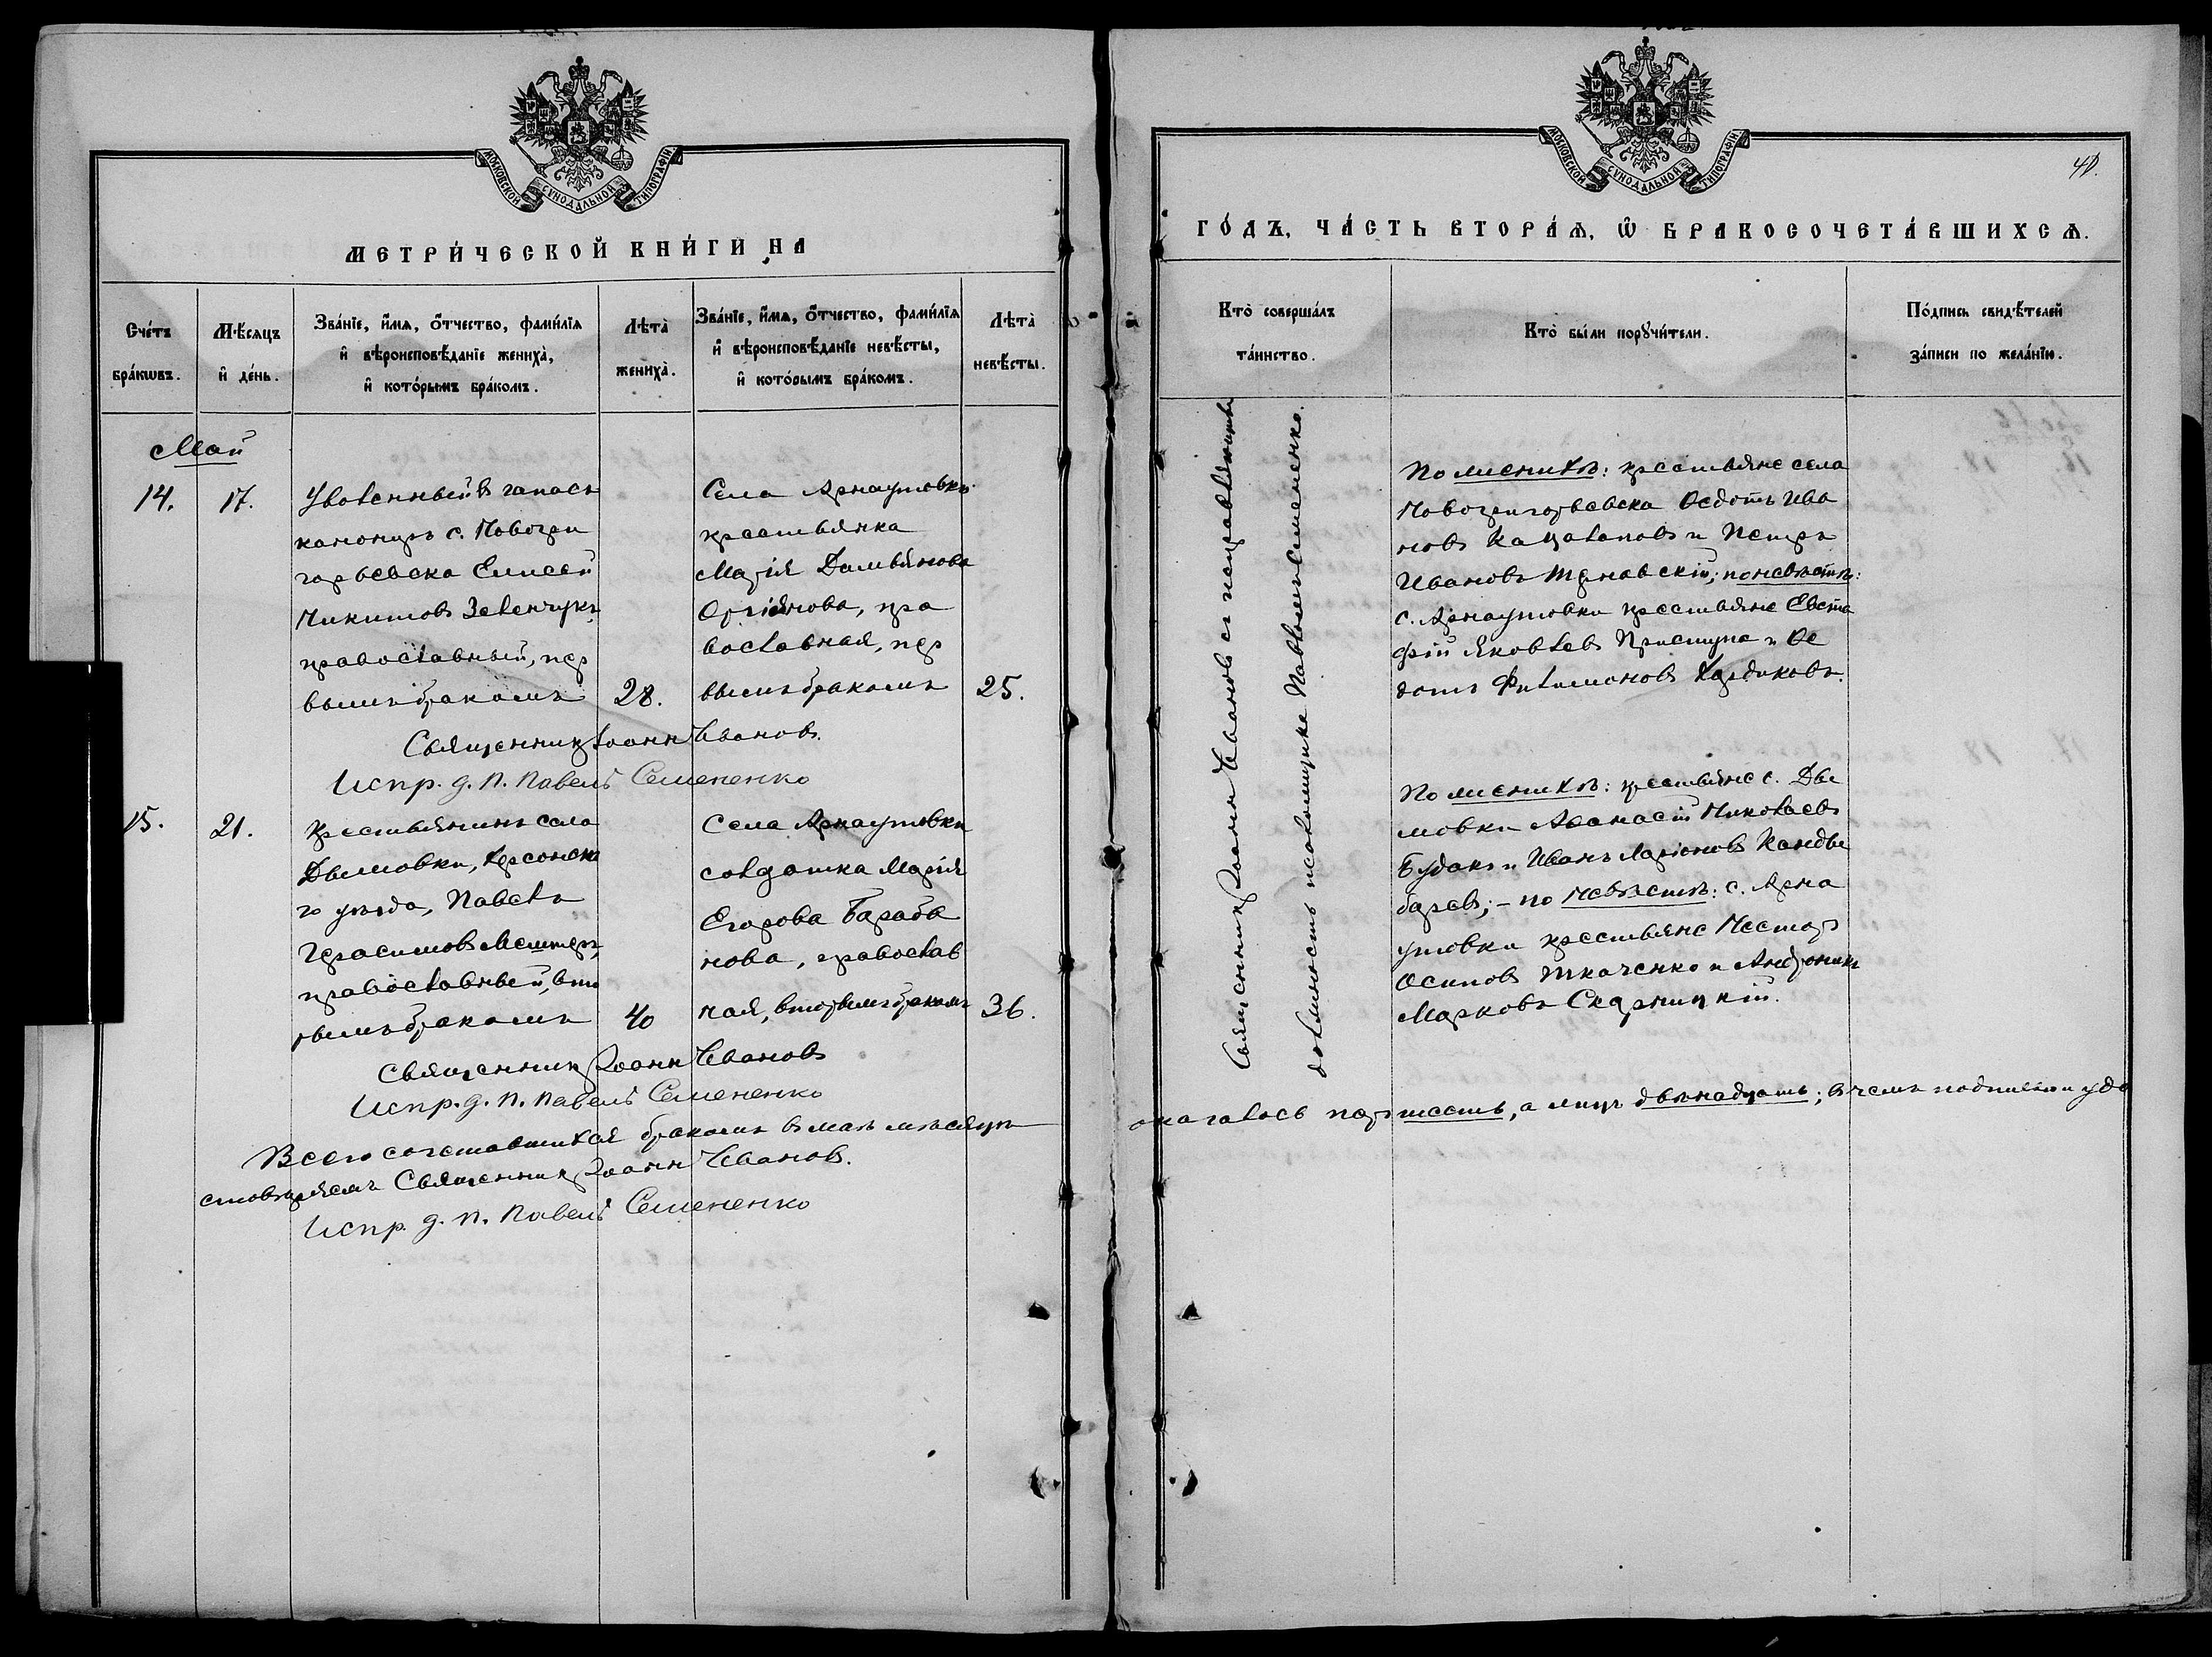 МОСКОВСКОЙ СѴНОДАЛЬНОЙ ТИПОГРАФІИ
МЕТРИ́ЧЕСКОЙ КНИ́ГИ НА
Сче́тъ бра́кѡвъ.
Мѣ́сяцъ и҆ де́нь.
Зва́нїе, и҆́мѧ, ѻ҆́тчество, фами́лїѧ
и҆ вѣроисповѣ́данїе жениха̀,
и҆ кото́рымъ бра́комъ.
Лѣта̀ жениха̀.
Зва́нїе, и҆́мѧ, ѻ҆́тчество, фами́лїѧ
и҆ вѣроисповѣ́данїе невѣ́сты,
и҆ кото́рымъ бра́комъ.
Лѣта̀ невѣ́сты.
Май
14.
17.
Уволенный в запасъ
канониръ с. Новогри
горьевска Елисей
Никитовъ Зеленчукъ,
православный, пер
вымъ бракомъ
28.
Села Арнаутовки
крестьянка
Марія Дамьянова
православная, пер
вымъ бракомъ
25.
Священникъ Іоаннъ Ивановъ.
Испр. д. П. Павелъ Семененко
15.
21.
Крестьянинъ села
Дымовки, Херсонска
го уѣзда, Павелъ
Герасимовъ
православный, вто
рымъ бракомъ
40
Села Арнаутовки
солдатка Марія
Егорова Бараба
нова, православ
ная, вторымъ бракомъ
36.
Священникъ Іоаннъ Ивановъ
Испр. д. П. Павелъ Семененко
Всего сочетавшихся бракомъ в маѣ мѣсяцѣ
ствовѣряемъ Священникъ Іоаннъ Ивановъ.
Испр. д. П. Павелъ Семененко
МОСКОВСКОЙ СѴНОДАЛЬНОЙ ТИПОГРАФІИ
ГО́ДЪ, ЧА́СТЬ ВТОРА́Ѧ, Ѡ҆ БРАКОСОЧЕТА́ВШИХСѦ.
Кто̀ соверша́лъ та́инство.
Кто̀ бы́ли порꙋчи́тели.
По́дпись свидѣ́телей за́писи по жела́нїю.
Священникъ Іоаннъ Ивановъ съ исправляющимъ
должность псаломщика Павломъ Семененко.
По женихѣ: крестьяне села
Новогригорьевска Ѳедотъ Ива
новъ Кацалаповъ и Петръ
Ивановъ Тарновскій; по невѣстѣ:
с. Арнаутовки крестьяне Евста
фій Яковлевъ Приступа и Ѳе
дотъ Филимоновъ
По женихѣ: крестьяне с. Ды
мовки Аѳанасій Николаевъ
Будакъ и Иванъ Ларіоновъ Канды
баревъ; – по невѣстѣ: с. Арна
утовки крестьяне Несторъ
Осиповъ Ткаченко и Андроникъ
Марковъ Скарницкій.
оказалось паръ шесть, а лицъ двѣнадцать; в чемъ подписомъ удо